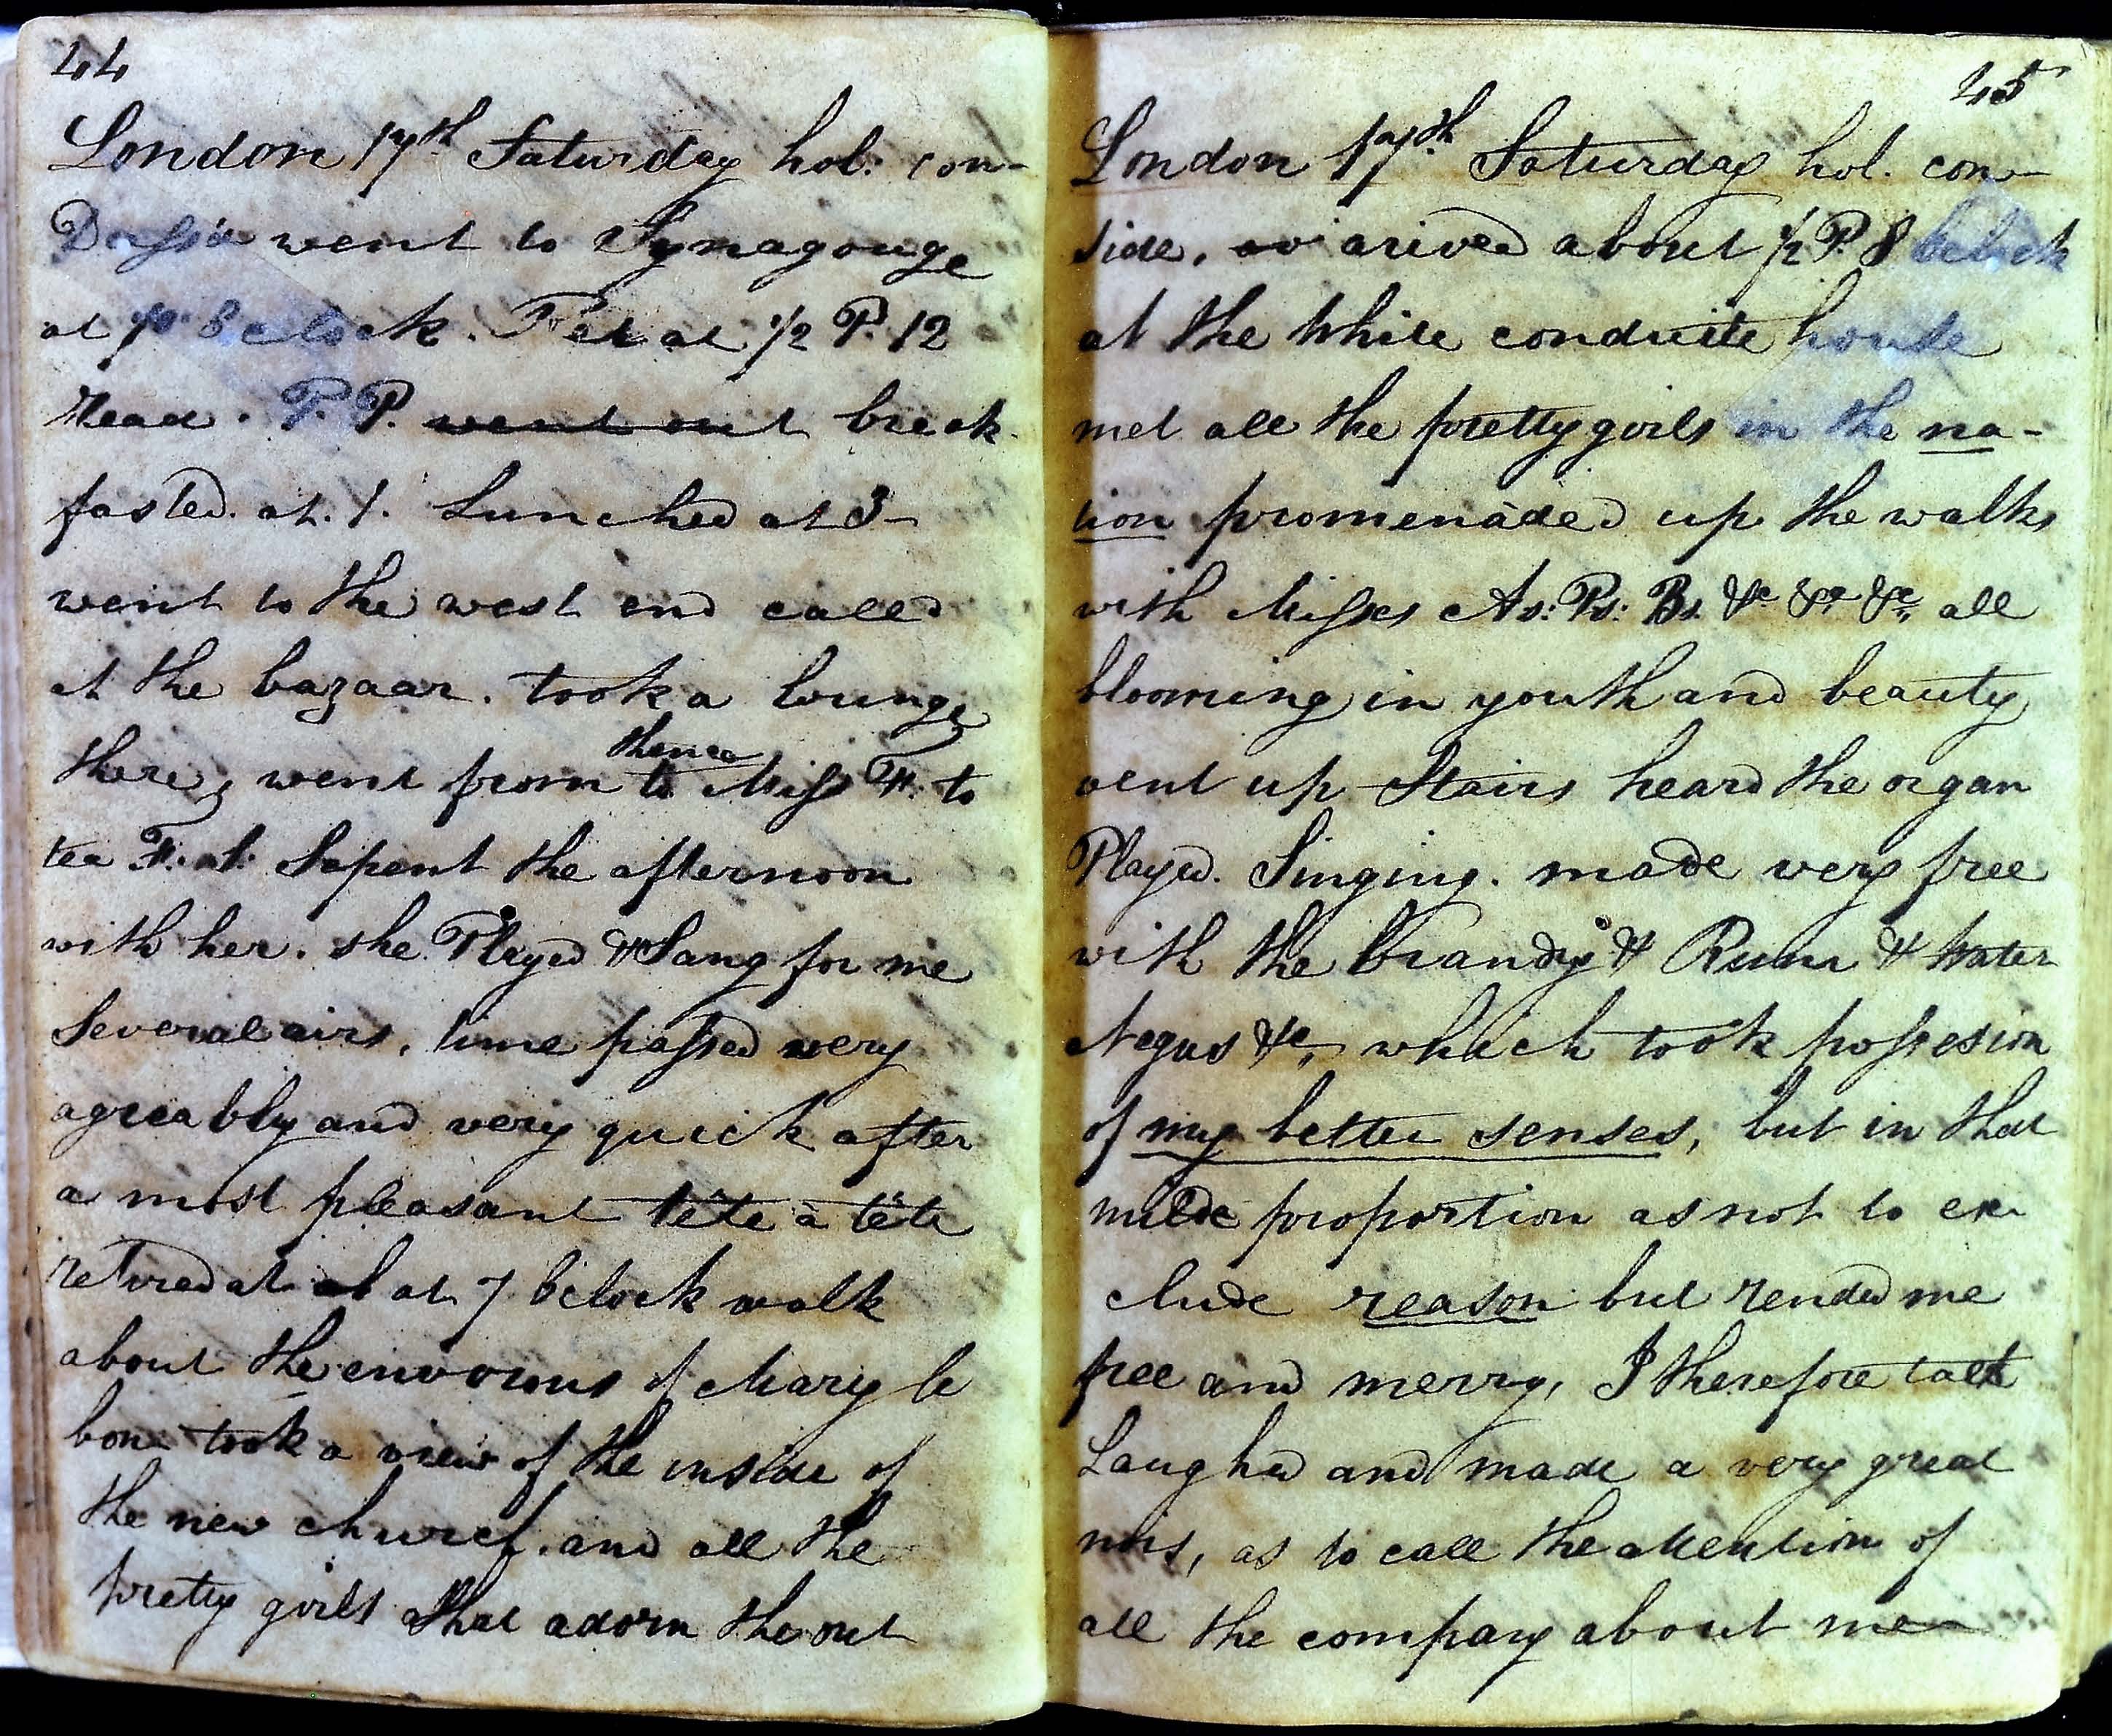 44
London 17th Saturday hol: con-
went to Synagouge
at 8 oclock. Ret at 1/2 P. 12
read. P. P. went out break
fasted. at. 1. Lunched at 3-
went to the west end called
at the bazaar. took a lounge
there, went from thence to Miss F. to
tea F. at. Sapent the afternoon
with her. she Played & Sang for me
several airs, time passed very
agreably and very quick after
a most pleasant tête à tête
retired at at 7 oclock walk
about the enviorons of Mary le
bone took a view of the inside of
the new church. and all the
pretty girls that adorn the out
45
London 17th Saturday hol. con-
side, arived about 1/2 P. 8 oclock
at the White conduite house
met all the pretty girls in the na-
tion promenàded up the walks
with Misses As: Ps: Bs. &c &c &c, all
blooming in youth and beauty
went up Stairs heard the organ
Played. Singing. made very free
with the brandy & Rum & Water
Negus &c, which took possesion
of my better senses, but in that
milde proportion as not to ex
clude reason but rended me
free and merry, I therefore talkt
Laughed and made a very great
nois, as to call the attention of
all the company about me